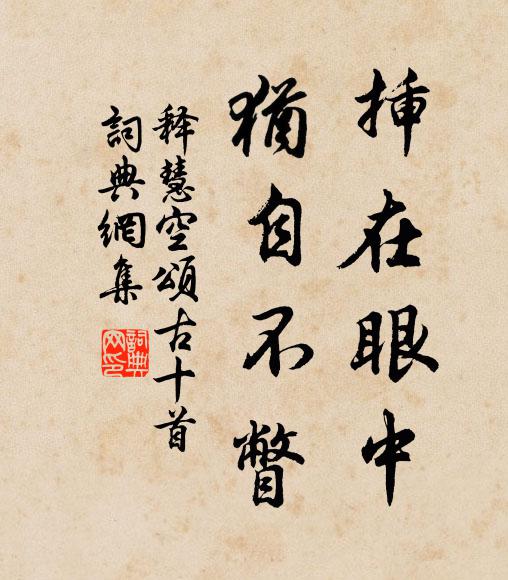 揷在眼中
猶自不瞥
释慧空頌古十首
詞典網集
詞典
网印